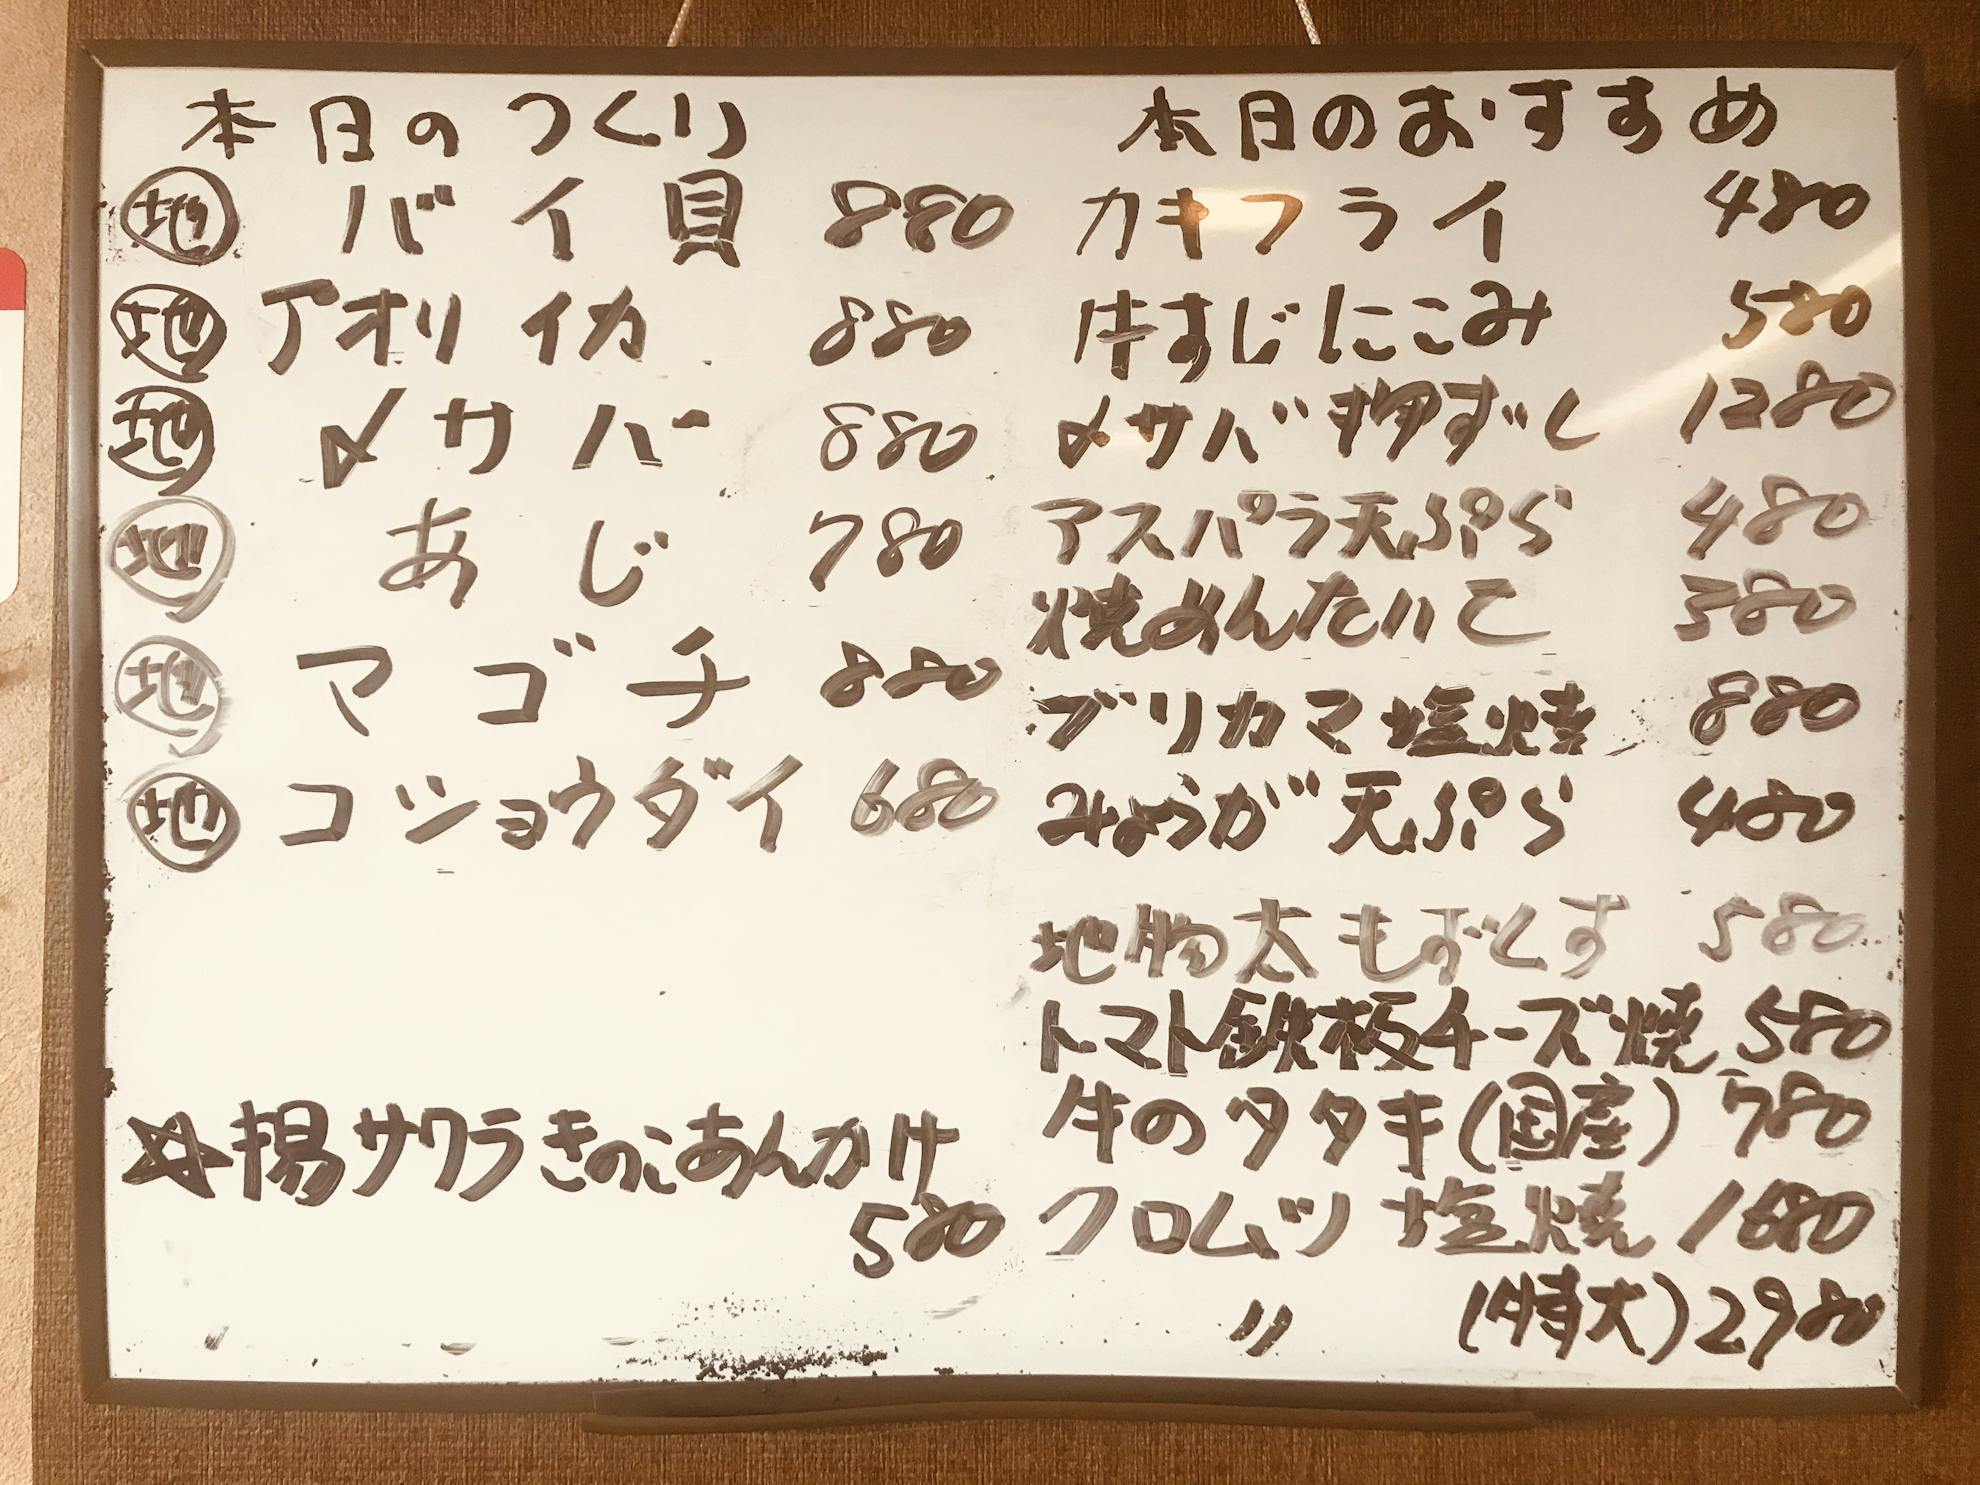 本日のつくり
㊞地 バイ貝 880
地 アオリイカ 880
地 〆サバ 880
地 あじ 780
地 マゴチ 880
地 コショウダイ 680
☆揚サワラきのこあんかけ
580
本日のおすすめ
カキフライ 480
牛すじにこみ 580
〆サバ押ずし 1280
アスパラ天ぷら 480
焼めんたいこ 380
ブリカマ塩焼 880
みょうが天ぷら 480
地物太もずくす 580
トマト鉄板チーズ焼 580
牛のタタキ(国産) 780
クロムツ塩焼 1680
〃 (特大) 2980